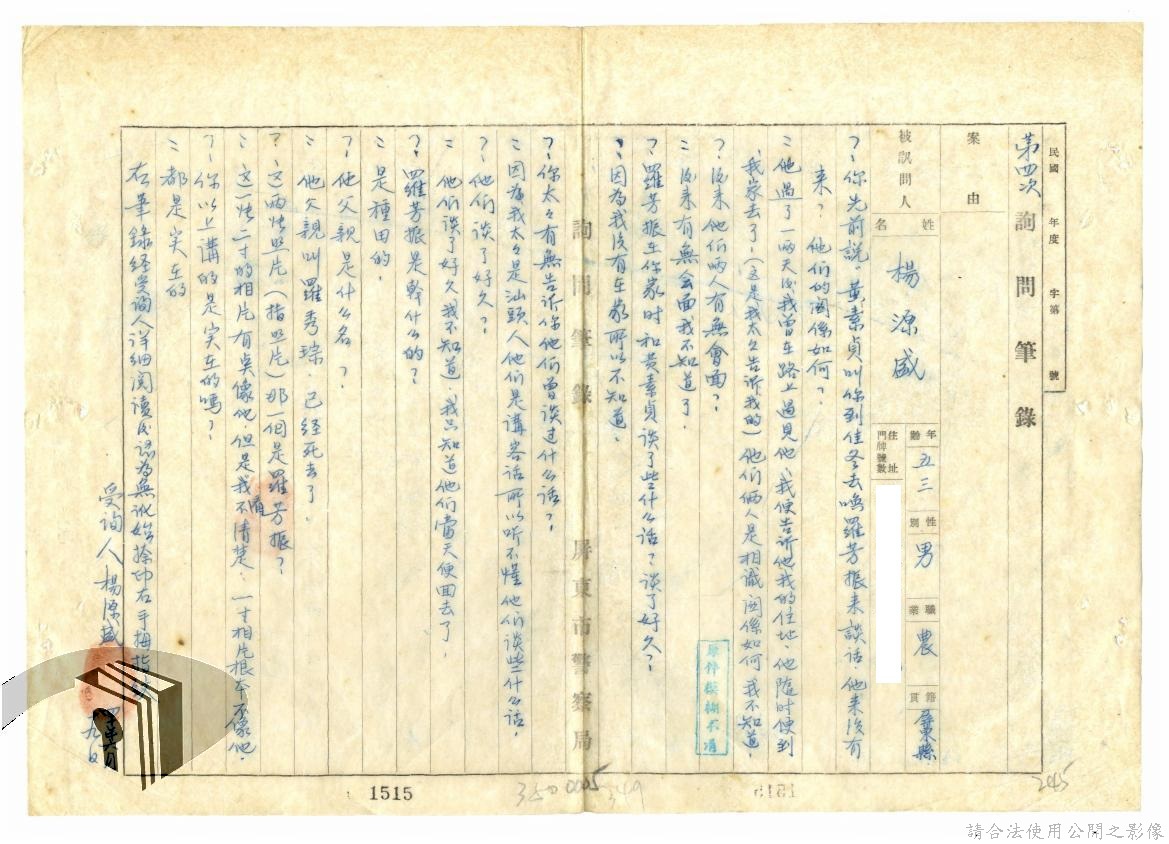 民國 年度 字第 號
第四次 詢問筆錄
案由
被訊問人 姓名 楊源盛 年齡 五三 性別 男 職業 農 籍貫 屏東縣
住址門牌號數
?、你先前說,黃素貞叫你到佳冬去喚羅芳振来談話,他来沒有
来?他们的関係如何?
:他過了一兩天後我曾在路上遇見他、我便告訴他我的住地、他隨时便到
我家去了,(这是我太々告訴我的)他们倆人是相識関係如何我不知道,
?、後来他们兩人有無會面?
:後来有無会面我不知道了
?、羅芳振在你家时和黃素貞谈了些什么话?谈了好久?
:因為我沒有在家所以不知道.
?、你太々有無告訴你他们曾谈过什么话?
:因為我太々是汕頭人他们是講客话所以听不懂他们谈些什么话,
?、他们谈了好久?
:他们谈了好久我不知道,我只知道他们當天便回去了,
?、羅芳振是幹什么的?
:是種田的,
?、他父親是什么名?
:他父親叫羅秀琮.已经死去了,
?、这兩张照片(指照片)那一個是羅芳振?
:这一张二寸的相片有臭像他,但是我不清楚:一寸相片根本不像他.
?、你以上講的是实在的嗎?
:都是实在的
在筆錄经受詢人详细阅读後認為無讹始捺印右手拇指紋
受詢人楊源盛
九日
屏東市警察局
詢問筆錄
原件模糊不清
1515
0005
349
245
請合法使用公開之影像